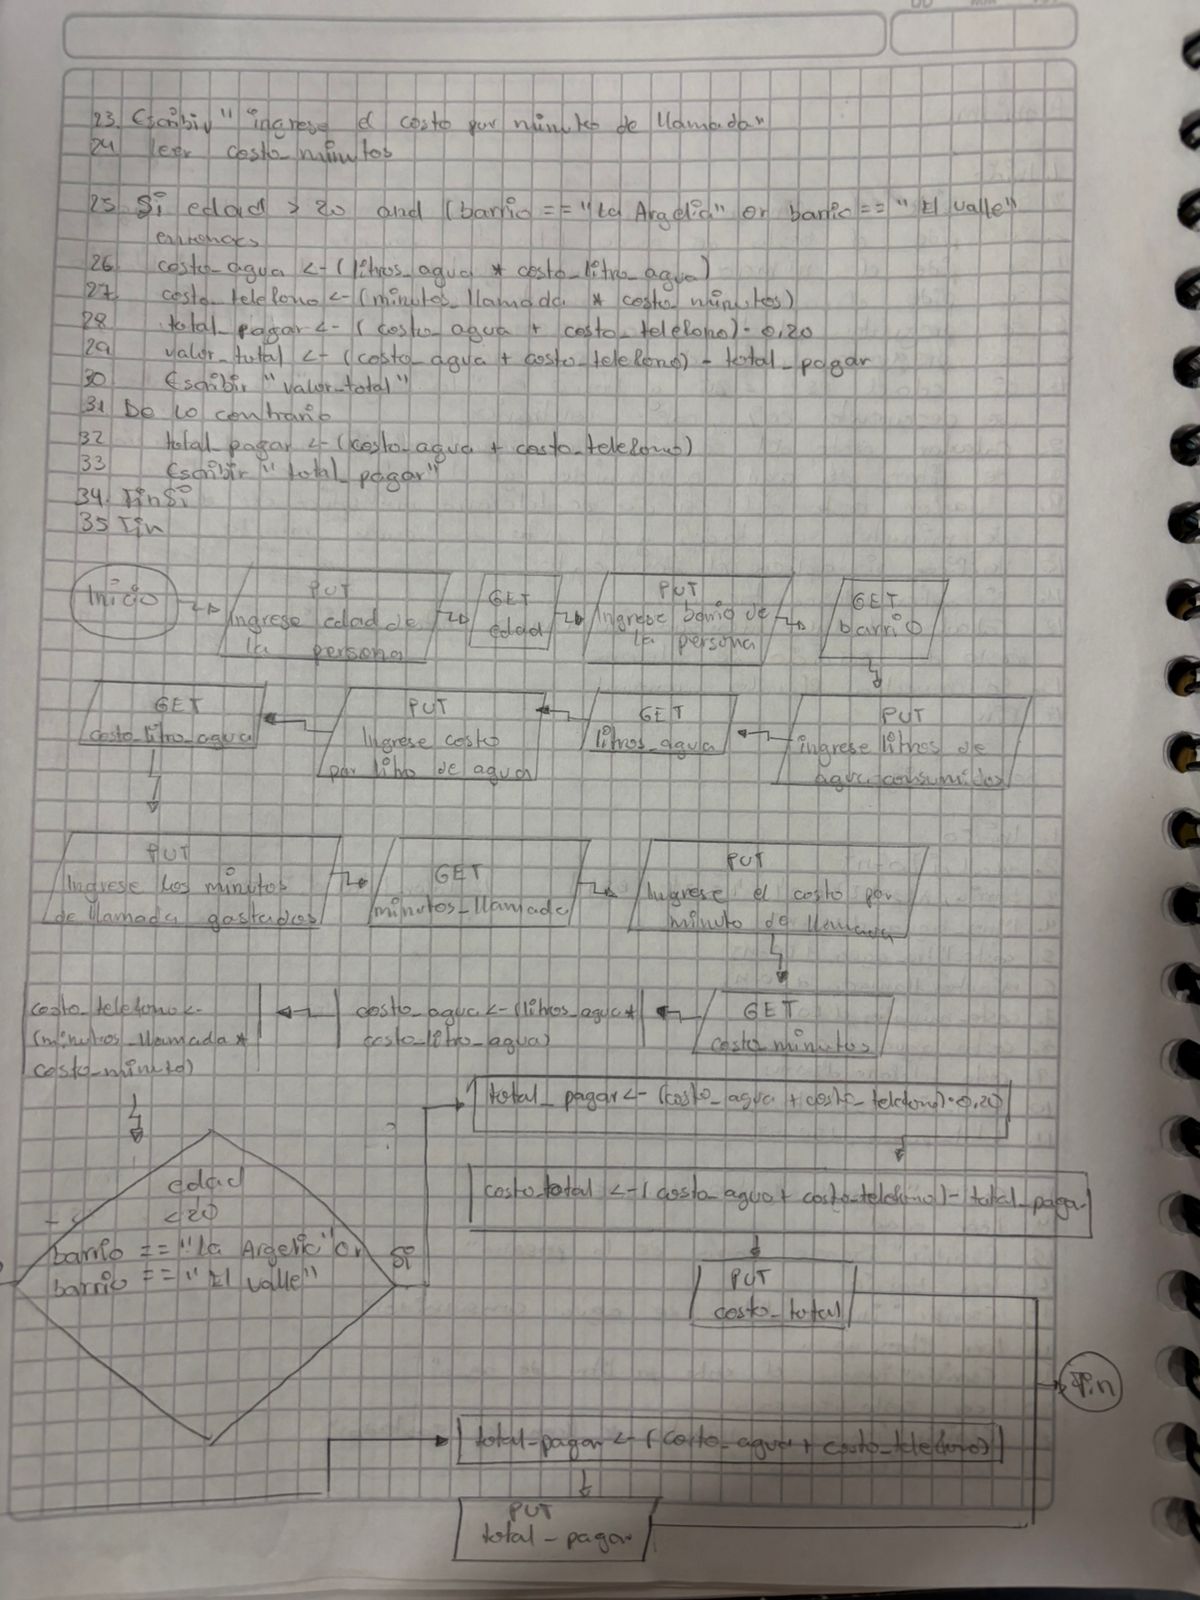 23. Escribir "ingrese el costo por minuto de llamada"
24 leer costo_minutos
25. Si edad > 20 and (barrio == "La Argelia" or barrio == "El valle"
entonces
26 costo_agua <- (litros_agua * costo_litro_agua)
27. costo_telefono <- (minutos_llamada * costo_minutos)
28 total_pagar <- (costo_agua + costo_telefono) * 0,20
29 valor_total <- (costo_agua + costo_telefono) - total_pagar
30 Escribir "valor_total"
31 De lo contrario
32 total_pagar <- (costo_agua + costo_telefono)
33 Escribir "total_pagar"
34. FinSi
35 Fin
Inicio
PUT
Ingrese edad de
la persona
GET
edad
PUT
Ingrese barrio de
la persona
GET
barrio
PUT
ingrese litros de
agua consumidos
GET
litros_agua
PUT
Ingrese costo
por litro de agua
GET
costo_litro_agua
PUT
Ingrese los minutos
de llamada gastados
GET
minutos_llamada
PUT
Ingrese el costo por
minuto de llamada
GET
costo_minutos
costo_agua <- (litros_agua *
costo_litro_agua)
costo_telefono <-
(minutos_llamada *
costo_minuto)
edad
< 20
barrio == "La Argelia" or
barrio == "El valle"
Si
total_pagar <- (costo_agua + costo_telefono) * 0,20
costo_total <- (costo_agua + costo_telefono) - total_pagar
PUT
costo_total
Fin
total_pagar <- (costo_agua + costo_telefono)
PUT
total_pagar